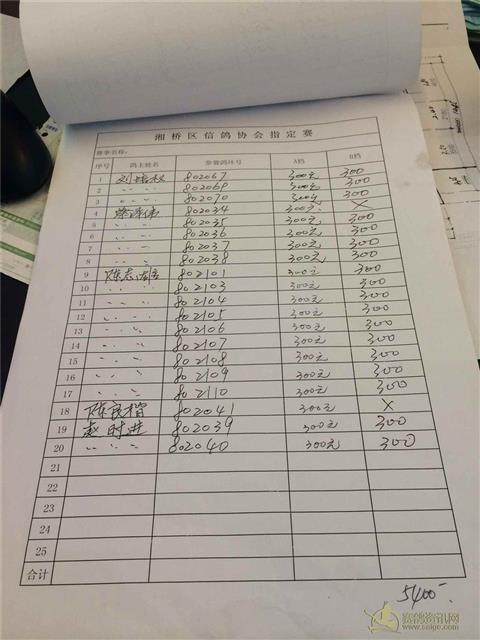 湘桥区信鸽协会指定赛
赛事名称:
序号 鸽主姓名 参赛鸽环号 A档 B档
1 802067 300元 300
2 〃 〃 〃 802069 300元 300
3 〃 〃 〃 802070 300元 300
4 802034 300元 X
5 〃 〃 〃 802035 300元 300
6 〃 〃 〃 802036 300元 300
7 〃 〃 〃 802037 300元 300
8 〃 〃 802038 300元 300
9 陈志 802101 300元 300
10 〃 〃 〃 802103 300元 300
11 〃 〃 〃 802104 300元 300
12 〃 〃 〃 802105 300元 300
13 〃 〃 〃 802106 300元 300
14 〃 〃 〃 802107 300元 300
15 〃 〃 〃 802108 300元 300
16 〃 〃 〃 802109 300元 300
17 〃 〃 〃 802110 300元 300
18 陈良楷 802041 300元 X
19 赵时进 802039 300元 300
20 〃 〃 〃 802040 300元 300
21
22
23
24
25
合计
5400-
赛鸽资讯网
www.saige.com